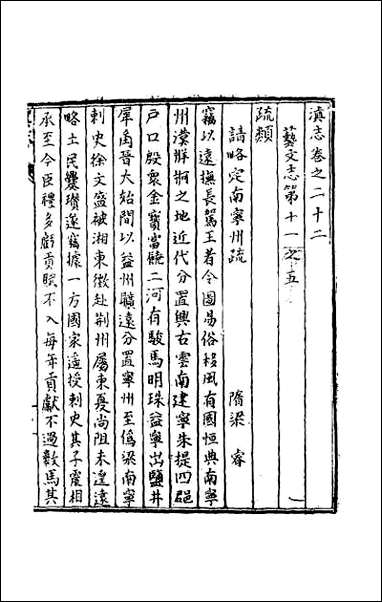 滇志卷之二十二
藝文志第十一之五
疏類
請略定南寧州疏 隋梁睿
竊以遠撫長駕王者令圖易俗移風有國恒典南寧
州漢牂牁之地近代分置興古雲南建寧朱提四郡
戶口殷衆金寶富饒二河有駿馬明珠益寧出鹽井
犀角晉大始間以益州曠遠分置寧州至僞梁南寧
刺史徐文盛被湘東徵赴荆州屬東夏尚阻未遑遠
略土民爨瓚遂竊據一方國家遥授刺史其子震相
承至今臣禮多虧貢賦不入每年貢獻不過數馬其
一